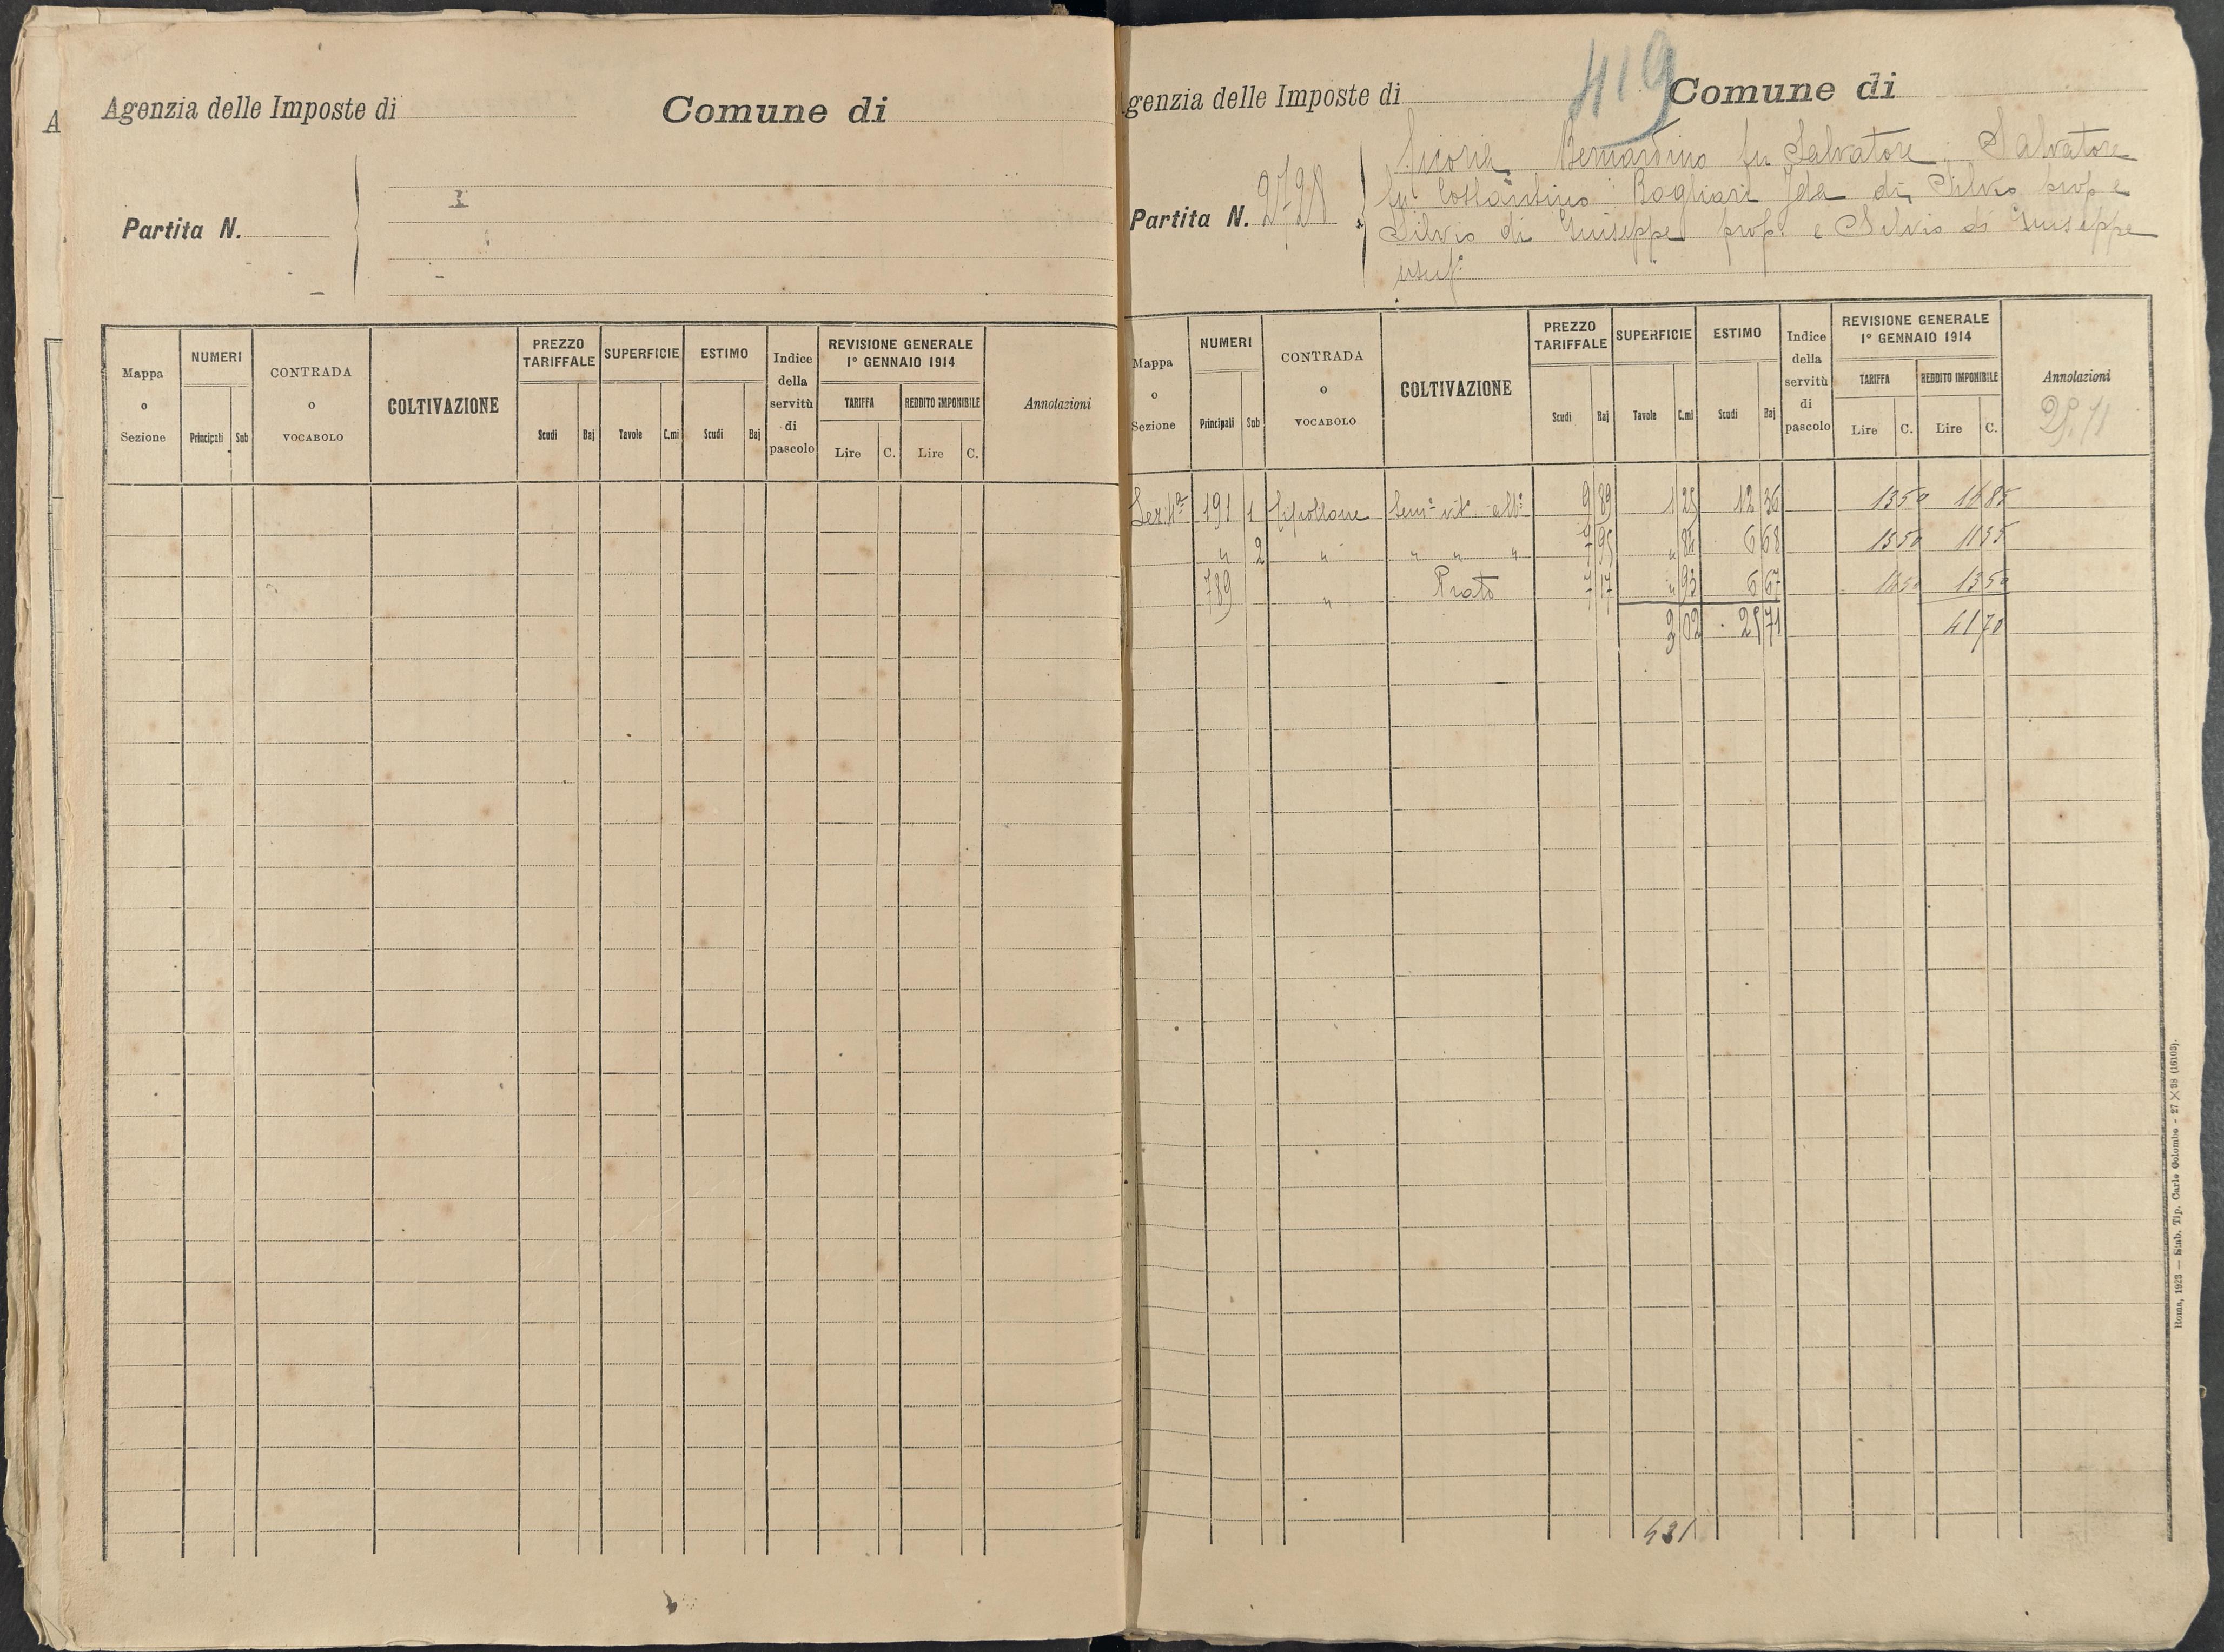 A
Agenzia delle Imposte di Comune di
Partita N.
Mappa o Sezione
NUMERI
Principali Sub
CONTRADA o VOCABOLO
COLTIVAZIONE
PREZZO TARIFFALE
Scudi Baj
SUPERFICIE
Tavole C.mi
ESTIMO
Scudi Baj
Indice della servitù di pascolo
REVISIONE GENERALE 1° GENNAIO 1914
TARIFFA
Lire C.
REDDITO IMPONIBILE
Lire C.
Annotazioni
419
genzia delle Imposte di Comune di
Partita N. 2728
Bernardino fu Salvatore, Salvatore
fu Costantino Bagliari Ida di Silvio prop e
Silvio di Giuseppe prop. e Silvio di Giuseppe
usuf.
Mappa o Sezione
NUMERI
Principali Sub
CONTRADA o VOCABOLO
COLTIVAZIONE
PREZZO TARIFFALE
Scudi Baj
SUPERFICIE
Tavole C.mi
ESTIMO
Scudi Baj
Indice della servitù di pascolo
REVISIONE GENERALE 1° GENNAIO 1914
TARIFFA
Lire C.
REDDITO IMPONIBILE
Lire C.
Annotazioni
25.71
Sez. 4ª 191 1 Sem° vit° alb° 9 89 1 25 12 36 1350 1685
" 2 " " " " 7 95 " 84 6 68 1350 1135
789 " Prato 7 17 " 93 6 67 1450 1350
3 02 25 71 41 70
431
Roma, 1923 — Stab. Tip. Carlo Colombo - 27 × 38 (16103).